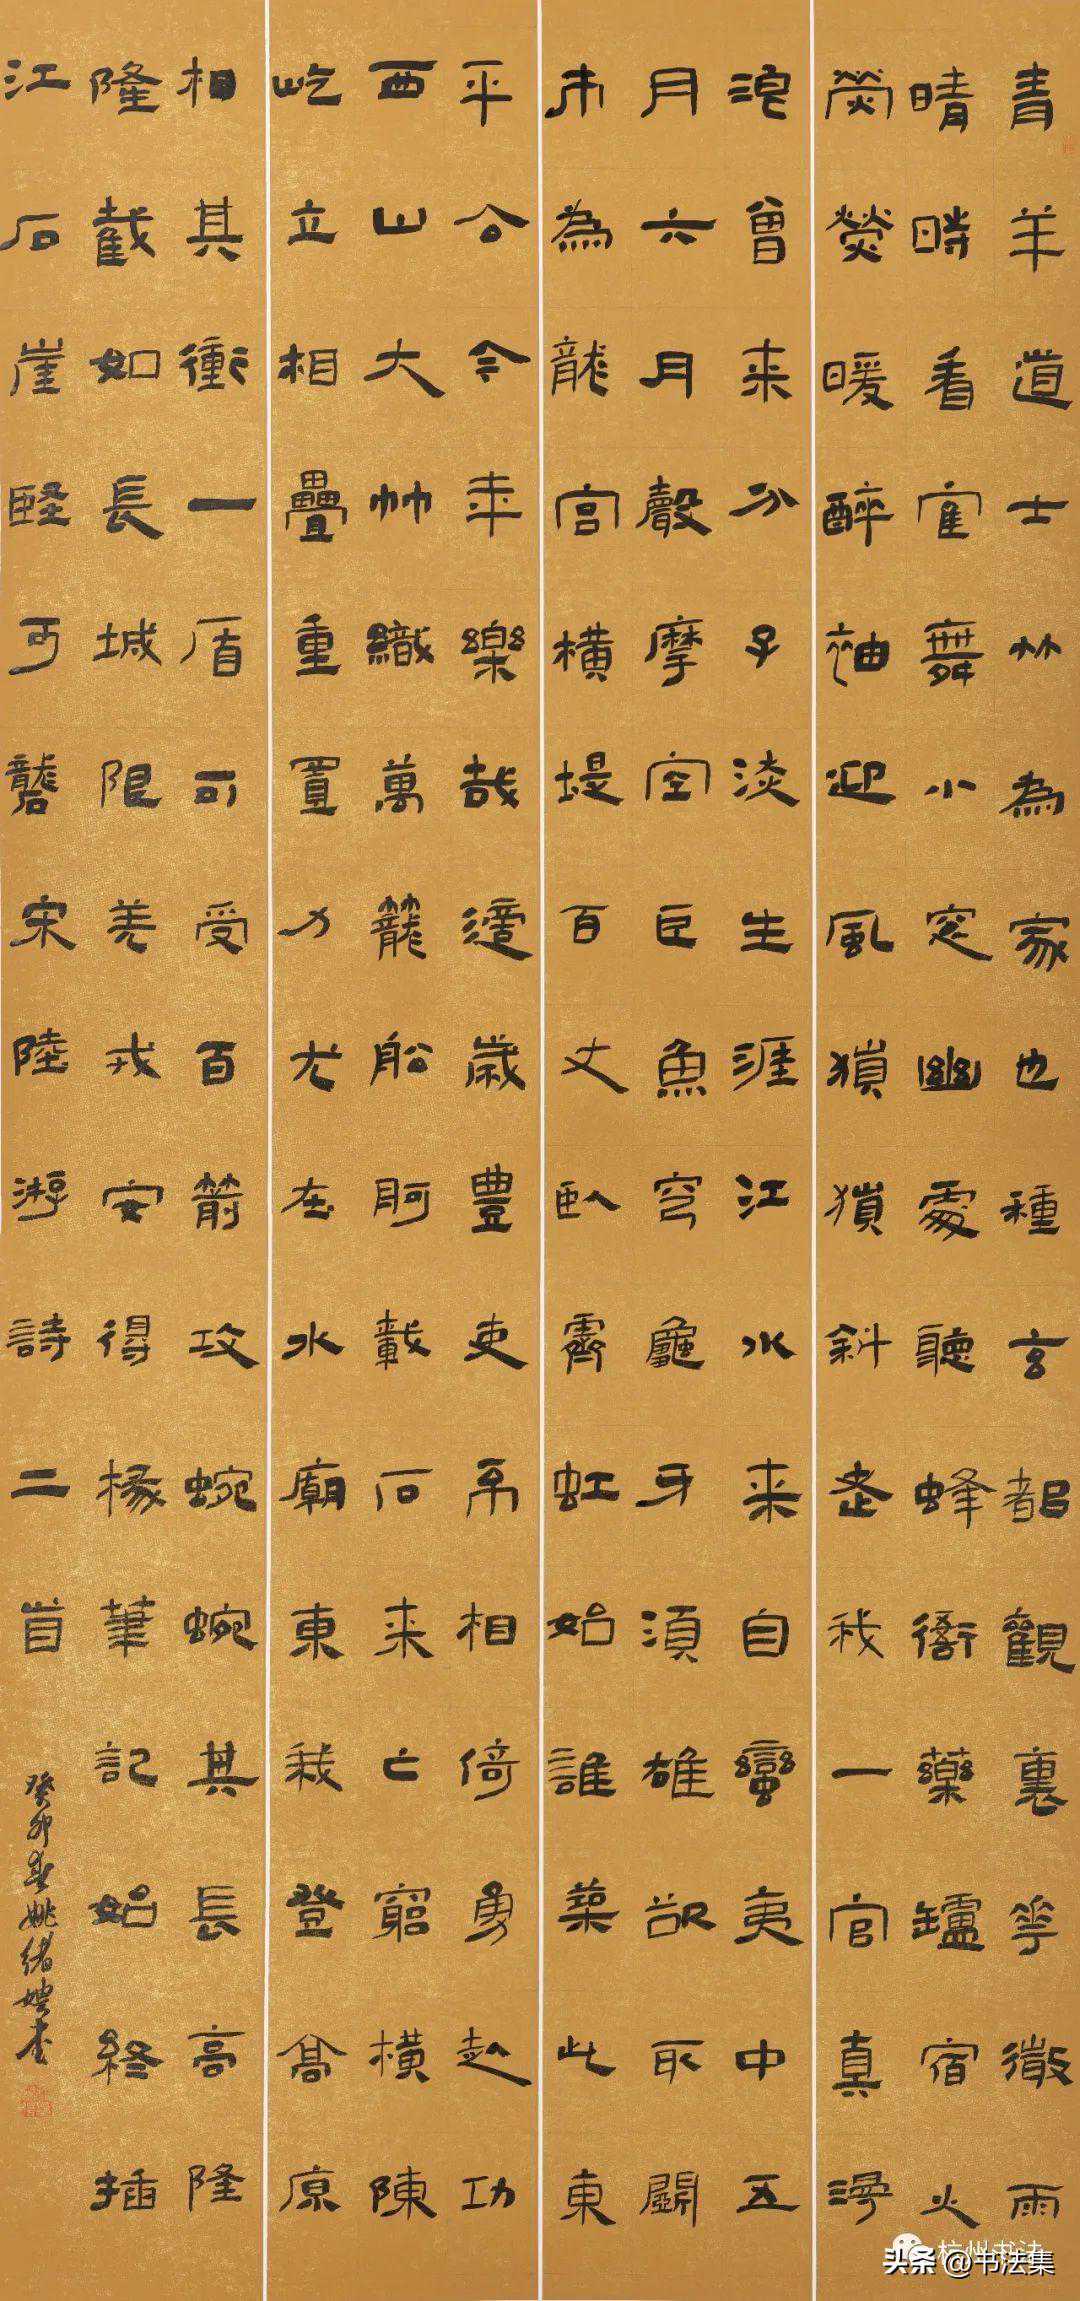 青羊道士竹為家也種玄都觀裏花微雨
晴時看寉舞小窓幽處聽蜂衙藥罏宿火
熒熒暖醉袖迎風獵獵斜老我一官真漫
浪曾来分子淡生涯江水来自蠻夷中五
月六月聲摩空巨魚穹龜牙須雄欲取闤
市為龍宮橫堤百丈臥霽虹始誰築此東
平公今年樂哉適歲豐吏不相倚勇赴功
西山大竹織萬籠船舸載石来亡窮橫陳
屹立相疊重置力尤在水廟東我登高原
相其衝一盾可受百箭攻蜿蜿其長高隆
隆截如長城限羌戎安得椽筆記始終插
江石崖堅可礱宋陸游詩二首
癸卯春姚緒
杭州书法
头条 @书法集